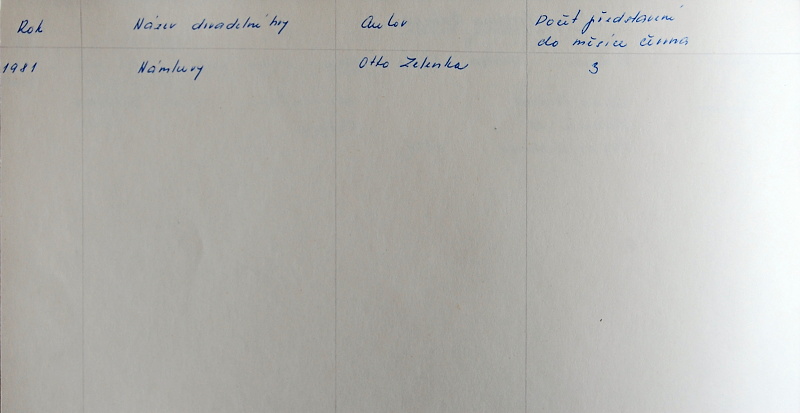 Rok Název divadelní hry Autor Počet představení
do měsíce června
1981 Námluvy Otto Zelenka 3